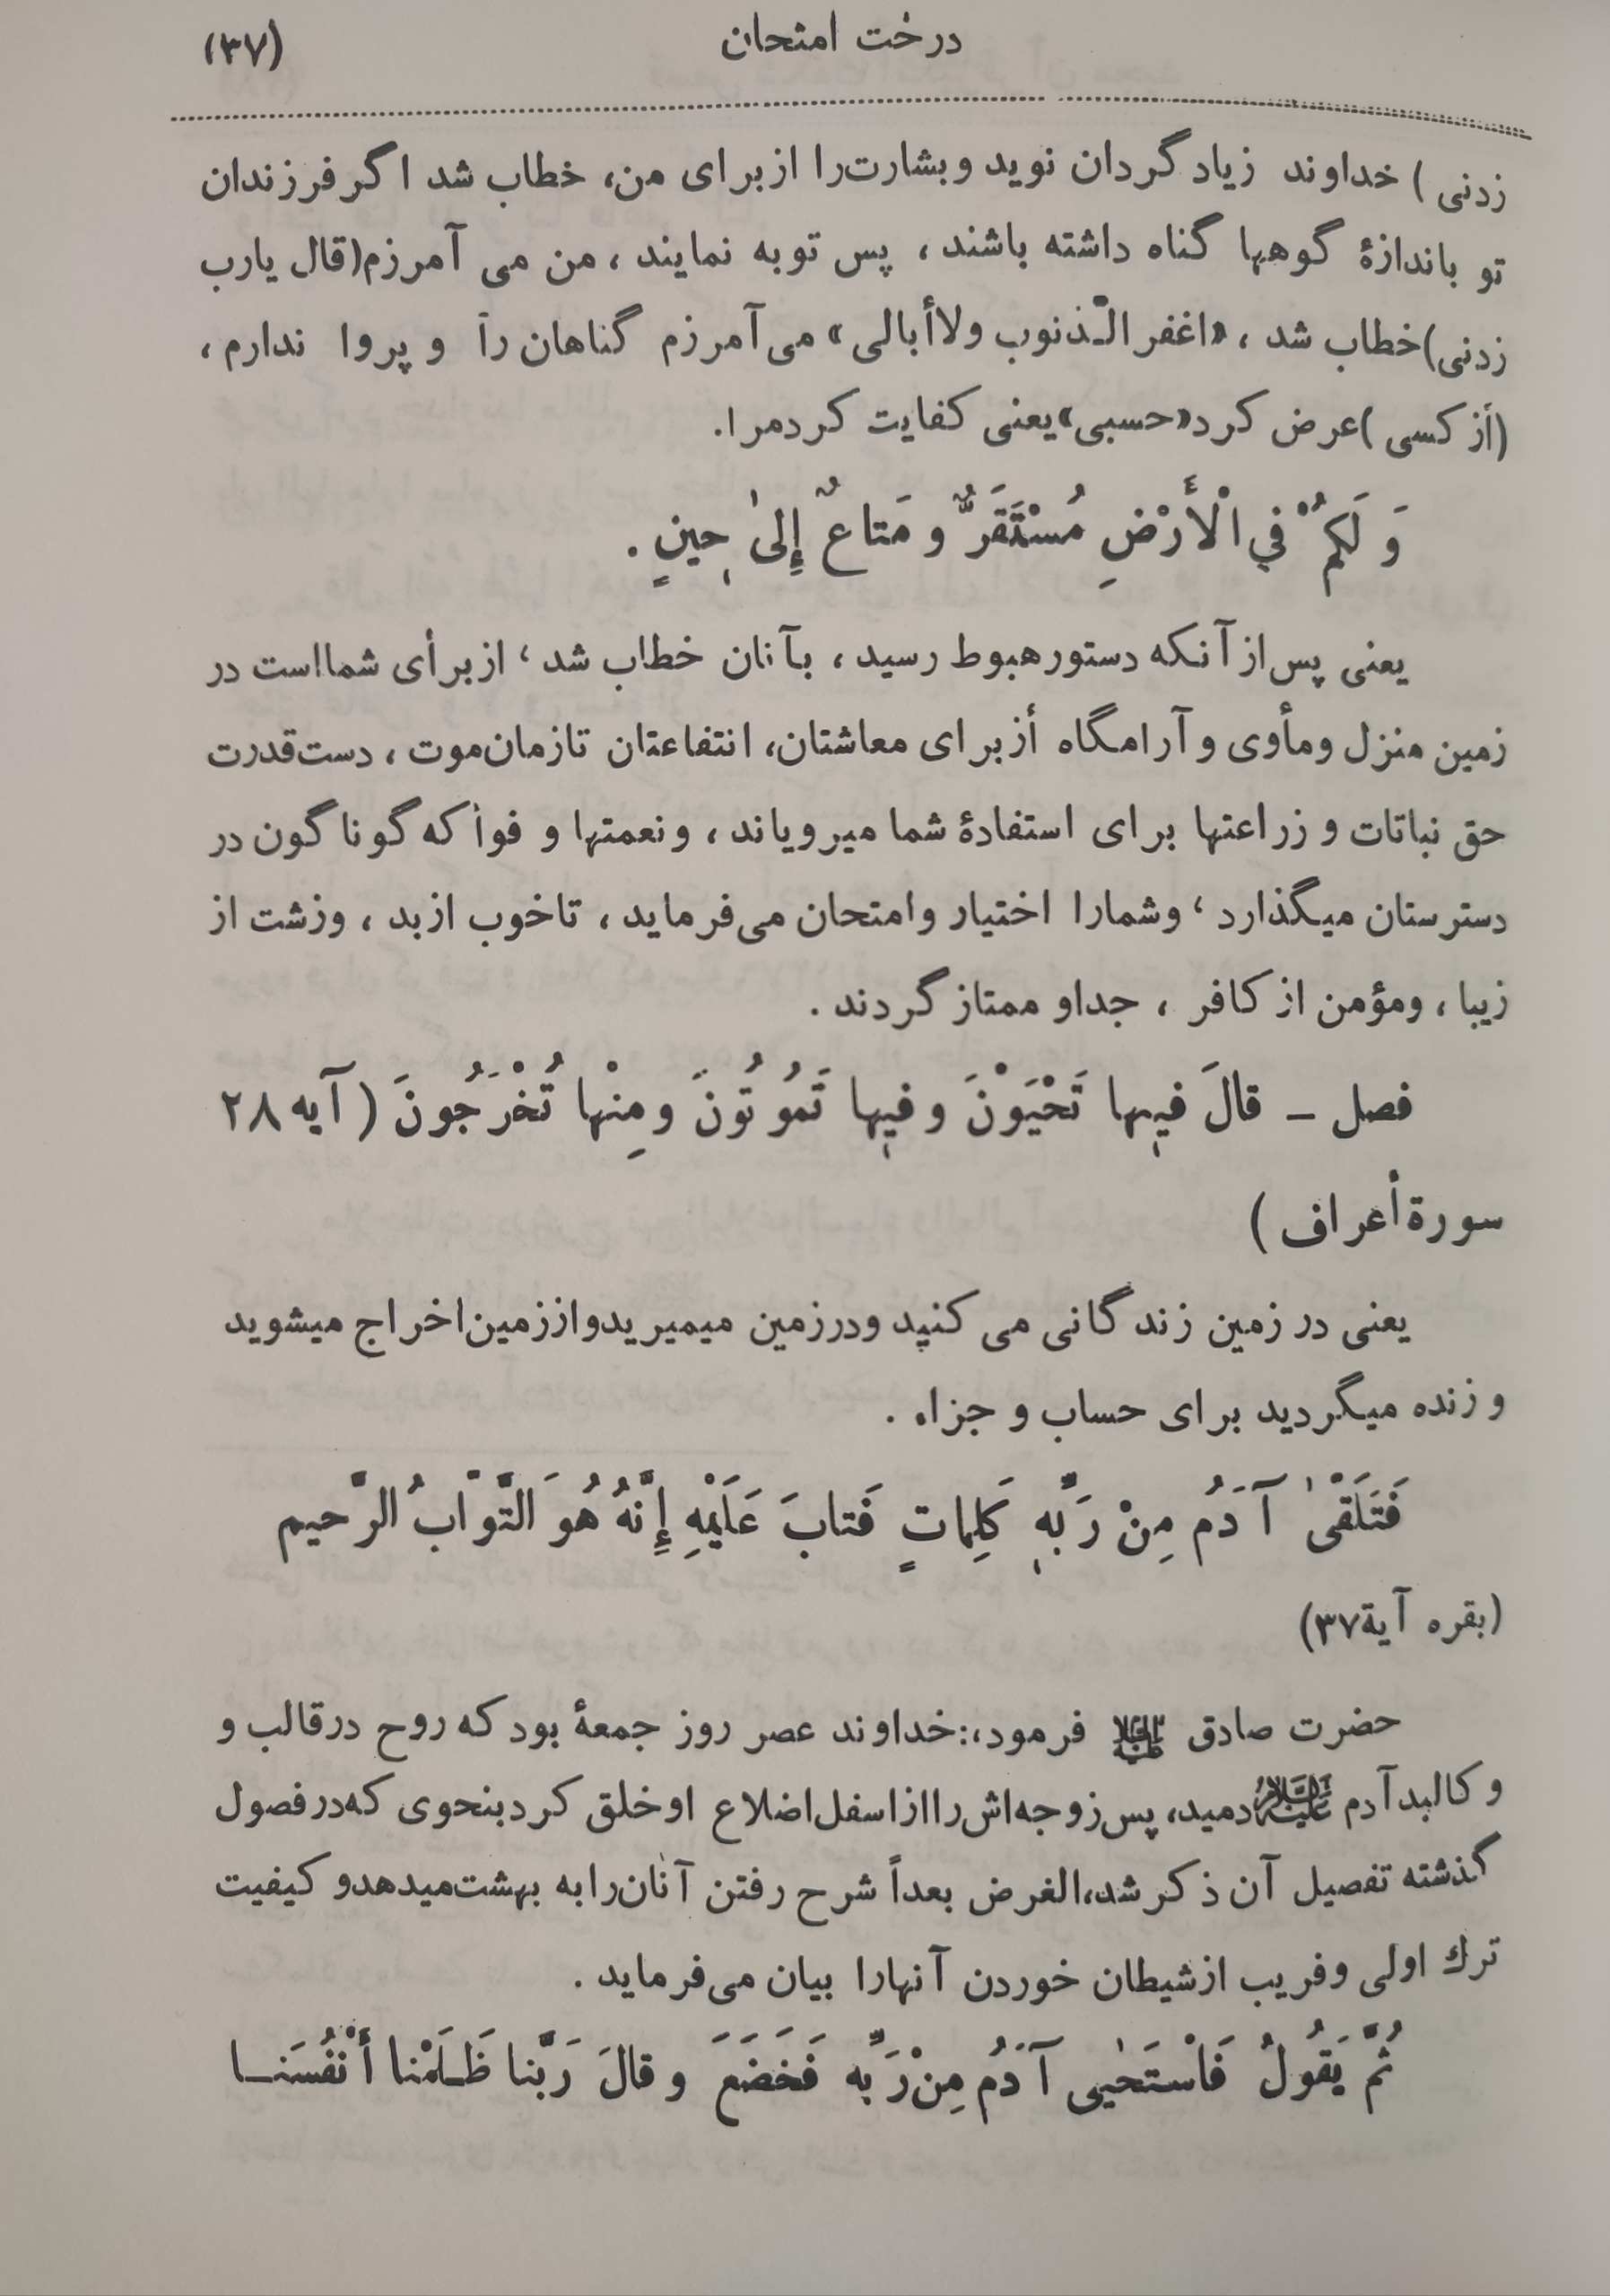 درخت امتحان (۳۷)
زدنی ) خداوند زیاد گردان نوید و بشارت‌را از برای من، خطاب شد اگر فرزندان
تو باندازهٔ گوهها گناه داشته باشند ، پس توبه نمایند ، من می آمرزم(قال یارب
زدنی)خطاب شد ، «اغفر الـذنوب ولاأبالی» می‌آمرزم گناهان را و پروا ندارم ،
(أز کسی )عرض کرد«حسبی»یعنی کفایت کردمرا.
وَ لَكُمْ في الْأَرْضِ مُسْتَقَرٌّ و مَتاعٌ إِلىٰ حِينٍ .
یعنی پس‌از آنکه دستور هبوط رسید ، بآنان خطاب شد ، از برأی شمااست در
زمین منزل ومأوی و آرامگاه أزبرای معاشتان، انتفاعتان تازمان‌موت ، دست‌قدرت
حق نباتات و زراعتها برای استفادهٔ شما میرویاند ، ونعمتها و فوأکه گوناگون در
دسترستان میگذارد ، وشمارا اختیار وامتحان می‌فرماید ، تاخوب ازبد ، وزشت از
زیبا ، ومؤمن از کافر ، جداو ممتاز گردند .
فصل – قالَ فيها تَحْيَوْنَ و فيها تَمُوتُونَ ومِنْها تُخْرَجُونَ ( آیه ۲۸
سورة أعراف )
یعنی در زمین زندگانی می کنپد ودرزمین میمیریدواززمین‌اخراج میشوید
و زنده میگردید برای حساب و جزاء .
فَتَلَقّىٰ آدَمُ مِنْ رَبِّهِ كَلِماتٍ فَتابَ عَلَيْهِ إِنَّهُ هُوَ التَّوّابُ الرَّحيم
(بقره آیة۳۷)
حضرت صادق علیه‌السلام فرمود،:خداوند عصر روز جمعهٔ بود که روح درقالب و
و کالبد آدم علیه‌السلام دمید، پس‌زوجه‌اش‌رااز اسفل‌اضلاع اوخلق کردبنحوی که‌درفصول
گذشته تفصیل آن ذکر شد،الغرض بعداً شرح رفتن آنان‌رابه بهشت‌میدهدو کیفیت
ترك اولی وفریب ازشیطان خوردن آنهارا بیان می‌فرماید .
ثُمَّ يَقُولُ فَاسْتَحْيٰى آدَمُ مِنْ رَبِّه فَخَضَعَ و قالَ رَبَّنا ظَـلَمْنا أَنْفُسَنـا